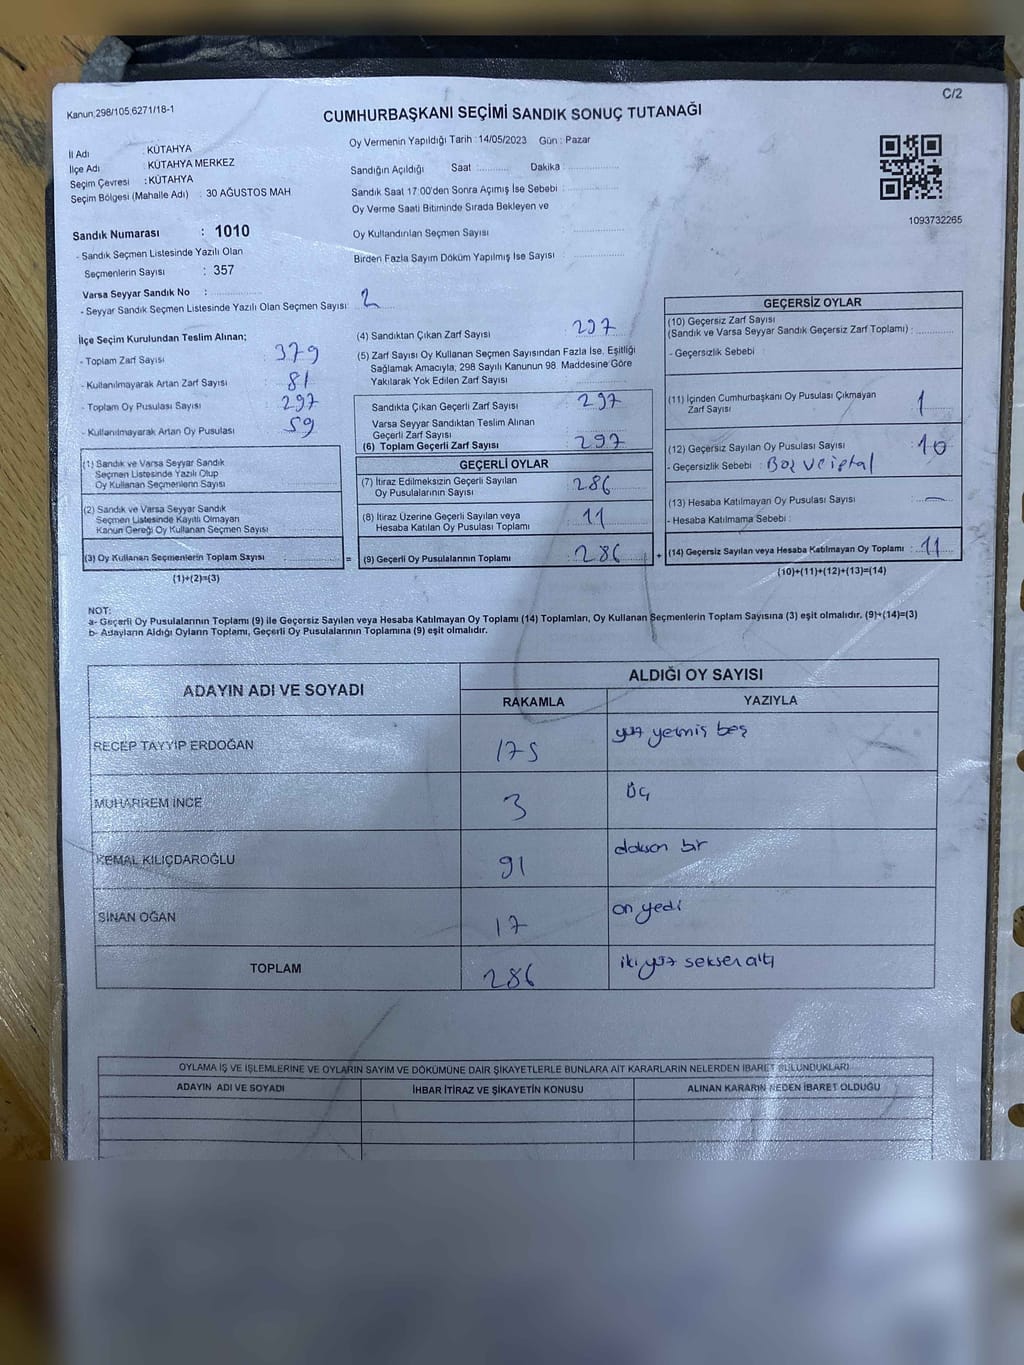 C/2
Kanun,298/105,6271/18-1
CUMHURBAŞKANI SEÇİMİ SANDIK SONUÇ TUTANAĞI
İl Adı : KÜTAHYA
İlçe Adı : KÜTAHYA MERKEZ
Seçim Çevresi : KÜTAHYA
Seçim Bölgesi (Mahalle Adı) : 30 AĞUSTOS MAH
Sandık Numarası : 1010
- Sandık Seçmen Listesinde Yazılı Olan
Seçmenlerin Sayısı : 357
Varsa Seyyar Sandık No :
- Seyyar Sandık Seçmen Listesinde Yazılı Olan Seçmen Sayısı: 2
Oy Vermenin Yapıldığı Tarih : 14/05/2023 Gün : Pazar
Sandığın Açıldığı Saat : Dakika :
Sandık Saat 17:00'den Sonra Açımış İse Sebebi :
Oy Verme Saati Bitiminde Sırada Bekleyen ve
Oy Kullandırılan Seçmen Sayısı :
Birden Fazla Sayım Döküm Yapılmış İse Sayısı :
1093732265
İlçe Seçim Kurulundan Teslim Alınan;
- Toplam Zarf Sayısı : 379
- Kullanılmayarak Artan Zarf Sayısı : 81
- Toplam Oy Pusulası Sayısı : 297
- Kullanılmayarak Artan Oy Pusulası : 59
(1) Sandık ve Varsa Seyyar Sandık
Seçmen Listesinde Yazılı Olup
Oy Kullanan Seçmenlerin Sayısı :
(2) Sandık ve Varsa Seyyar Sandık
Seçmen Listesinde Kayıtlı Olmayan
Kanun Gereği Oy Kullanan Seçmen Sayısı :
(3) Oy Kullanan Seçmenlerin Toplam Sayısı : =
(1)+(2)=(3)
(4) Sandıktan Çıkan Zarf Sayısı : 297
(5) Zarf Sayısı Oy Kullanan Seçmen Sayısından Fazla İse, Eşitliği
Sağlamak Amacıyla; 298 Sayılı Kanunun 98. Maddesine Göre
Yakılarak Yok Edilen Zarf Sayısı :
Sandıkta Çıkan Geçerli Zarf Sayısı : 297
Varsa Seyyar Sandıktan Teslim Alınan
Geçerli Zarf Sayısı :
(6) Toplam Geçerli Zarf Sayısı : 297
GEÇERLİ OYLAR
(7) İtiraz Edilmeksizin Geçerli Sayılan
Oy Pusulalarının Sayısı : 286
(8) İtiraz Üzerine Geçerli Sayılan veya
Hesaba Katılan Oy Pusulası Toplamı : 11
(9) Geçerli Oy Pusulalarının Toplamı : 286 +
GEÇERSİZ OYLAR
(10) Geçersiz Zarf Sayısı
(Sandık ve Varsa Seyyar Sandık Geçersiz Zarf Toplamı) :
- Geçersizlik Sebebi :
(11) İçinden Cumhurbaşkanı Oy Pusulası Çıkmayan
Zarf Sayısı : 1
(12) Geçersiz Sayılan Oy Pusulası Sayısı : 10
- Geçersizlik Sebebi : Boş ve iptal
(13) Hesaba Katılmayan Oy Pusulası Sayısı : —
- Hesaba Katılmama Sebebi :
(14) Geçersiz Sayılan veya Hesaba Katılmayan Oy Toplamı : 11
(10)+(11)+(12)+(13)=(14)
NOT:
a- Geçerli Oy Pusulalarının Toplamı (9) ile Geçersiz Sayılan veya Hesaba Katılmayan Oy Toplamı (14) Toplamları, Oy Kullanan Seçmenlerin Toplam Sayısına (3) eşit olmalıdır. (9)+(14)=(3)
b- Adayların Aldığı Oyların Toplamı, Geçerli Oy Pusulalarının Toplamına (9) eşit olmalıdır.
ADAYIN ADI VE SOYADI ALDIĞI OY SAYISI
RAKAMLA YAZIYLA
RECEP TAYYİP ERDOĞAN 175 yüz yetmiş beş
MUHARREM İNCE 3 üç
KEMAL KILIÇDAROĞLU 91 doksan bir
SİNAN OĞAN 17 on yedi
TOPLAM 286 iki yüz seksen altı
OYLAMA İŞ VE İŞLEMLERİNE VE OYLARIN SAYIM VE DÖKÜMÜNE DAİR ŞİKAYETLERLE BUNLARA AİT KARARLARIN NELERDEN İBARET BULUNDUKLARI
ADAYIN ADI VE SOYADI İHBAR İTİRAZ VE ŞİKAYETİN KONUSU ALINAN KARARIN NEDEN İBARET OLDUĞU